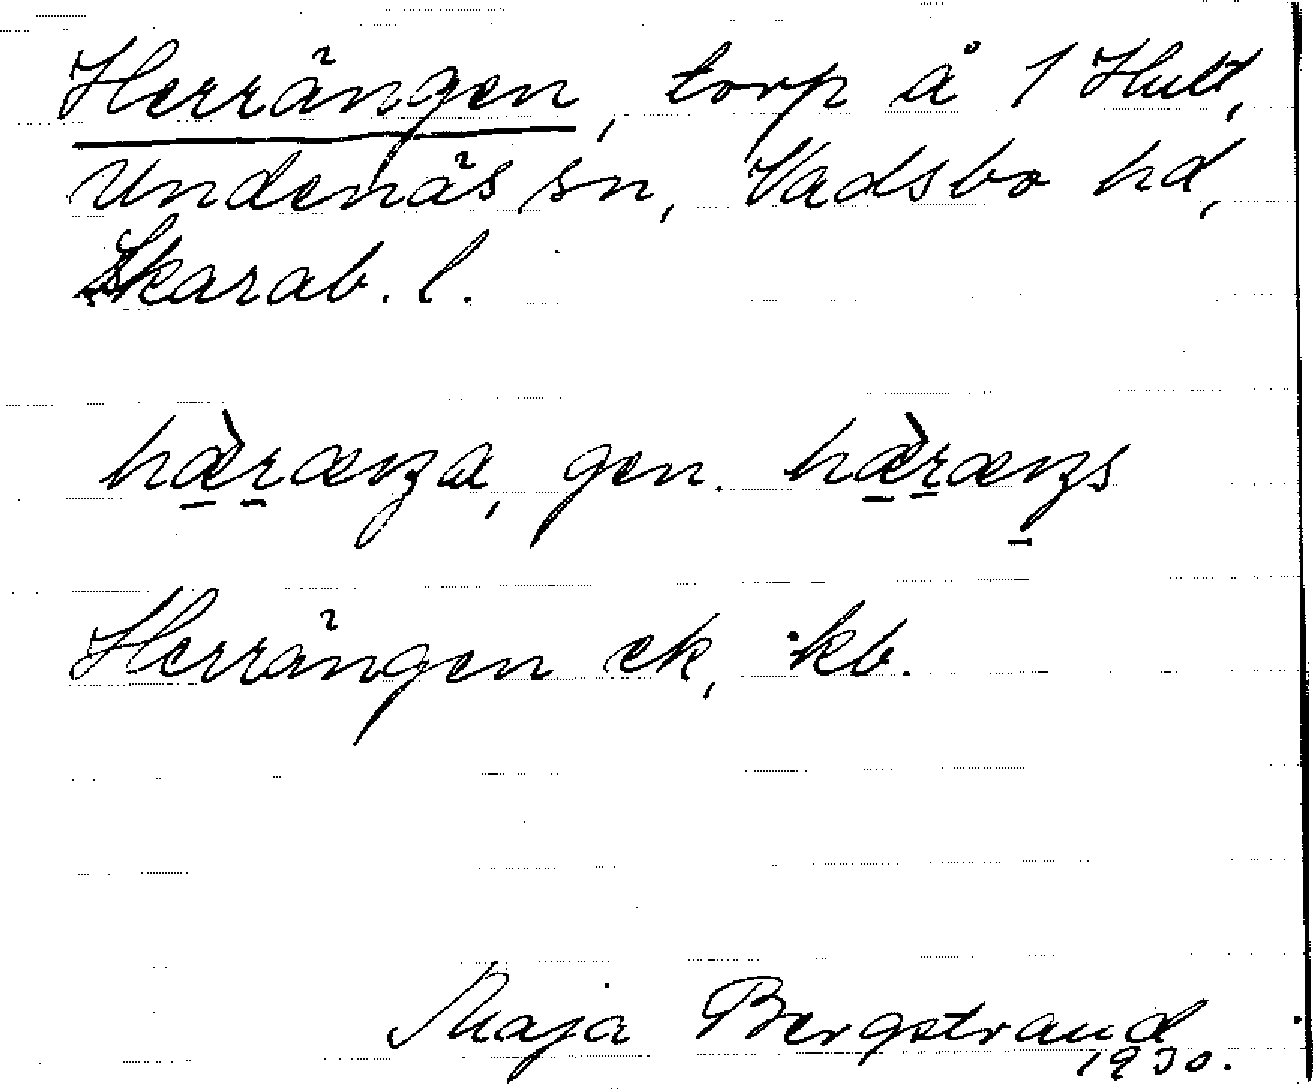 Herrängen, torp å 1 Hult,
Undenäs sn, Vadsbo hd,
Skarab. l.
hæ̀ræŋa, gen. hæ̀ræŋs
Herrängen ek, kb.
Maja Bergstrand
1930.